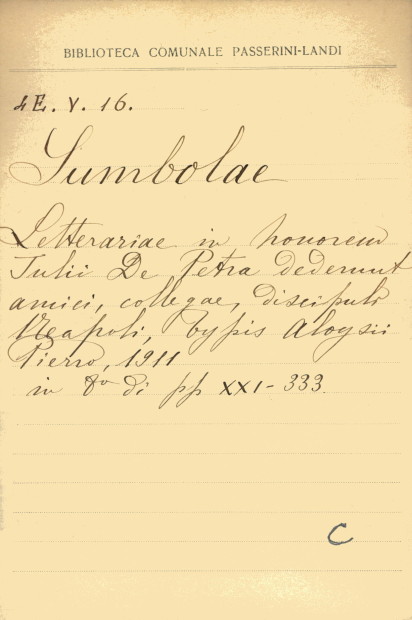 BIBLIOTECA COMUNALE PASSERINI-LANDI
4E. V. 16.
Sumbolae
Letterariae in honorem
Julii De Petra dederunt
amici, collegae, discipuli
Neapoli, typis Aloysii
Pierro, 1911
in 8vo di pp XXI-333.
C